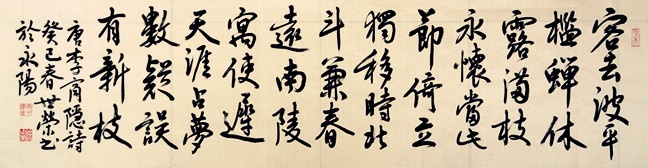 客去波平
檻蟬休
露滿枝
永懷當此
節倚立
獨移時北
斗兼春
遠南陵
寓使遲
天涯占夢
數疑誤
有新枝
唐李商隱詩
癸巳春世榮書
於永陽